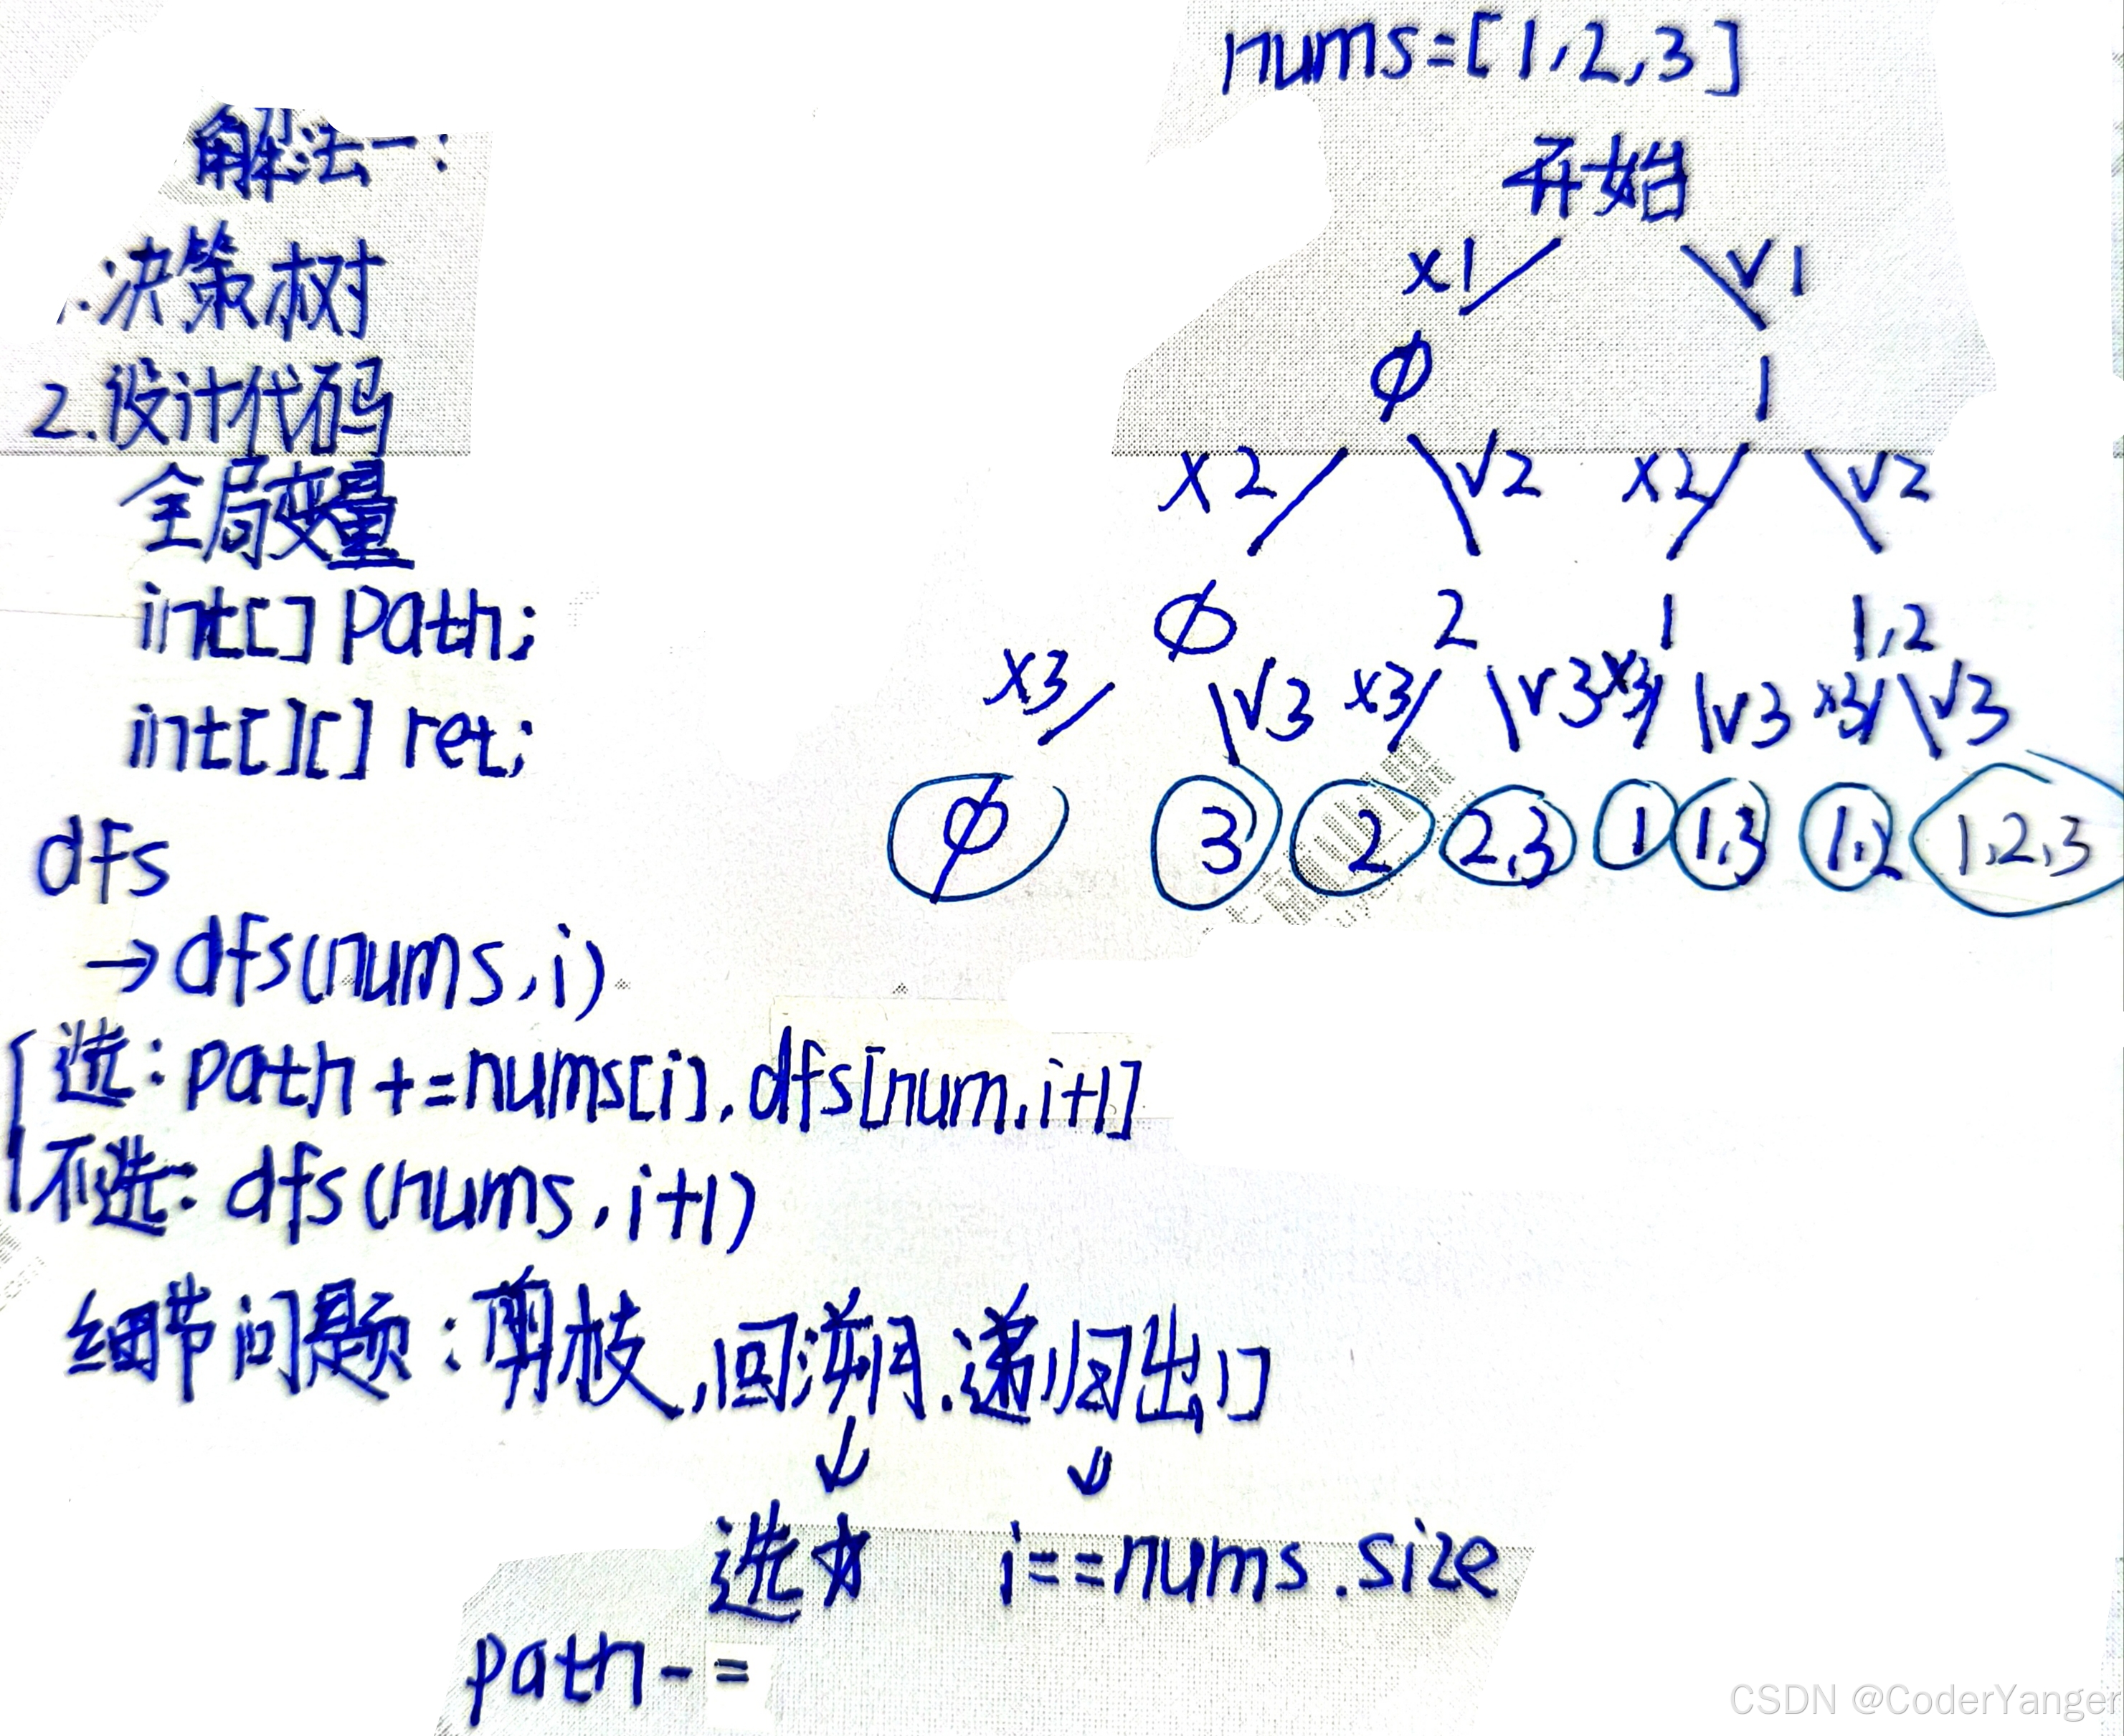 nums=[1,2,3]
解法一:
开始
1.决策树
x1 √1
ϕ 1
2.设计代码
x2 √2 x2 √2
全局变量
int[] path;
ϕ 2 1 1,2
x3 √3 x3 √3 x3 √3 x3 √3
int[][] ret;
ϕ 3 2 2,3 1 1,3 1,2 1,2,3
dfs
→dfs(nums,i)
选: path +=nums[i]. dfs[num,i+1]
不选: dfs(nums,i+1)
细节问题:剪枝,回溯.递归出口
↓ ↓
选 i==nums.size
path-=
CSDN @CoderYanger